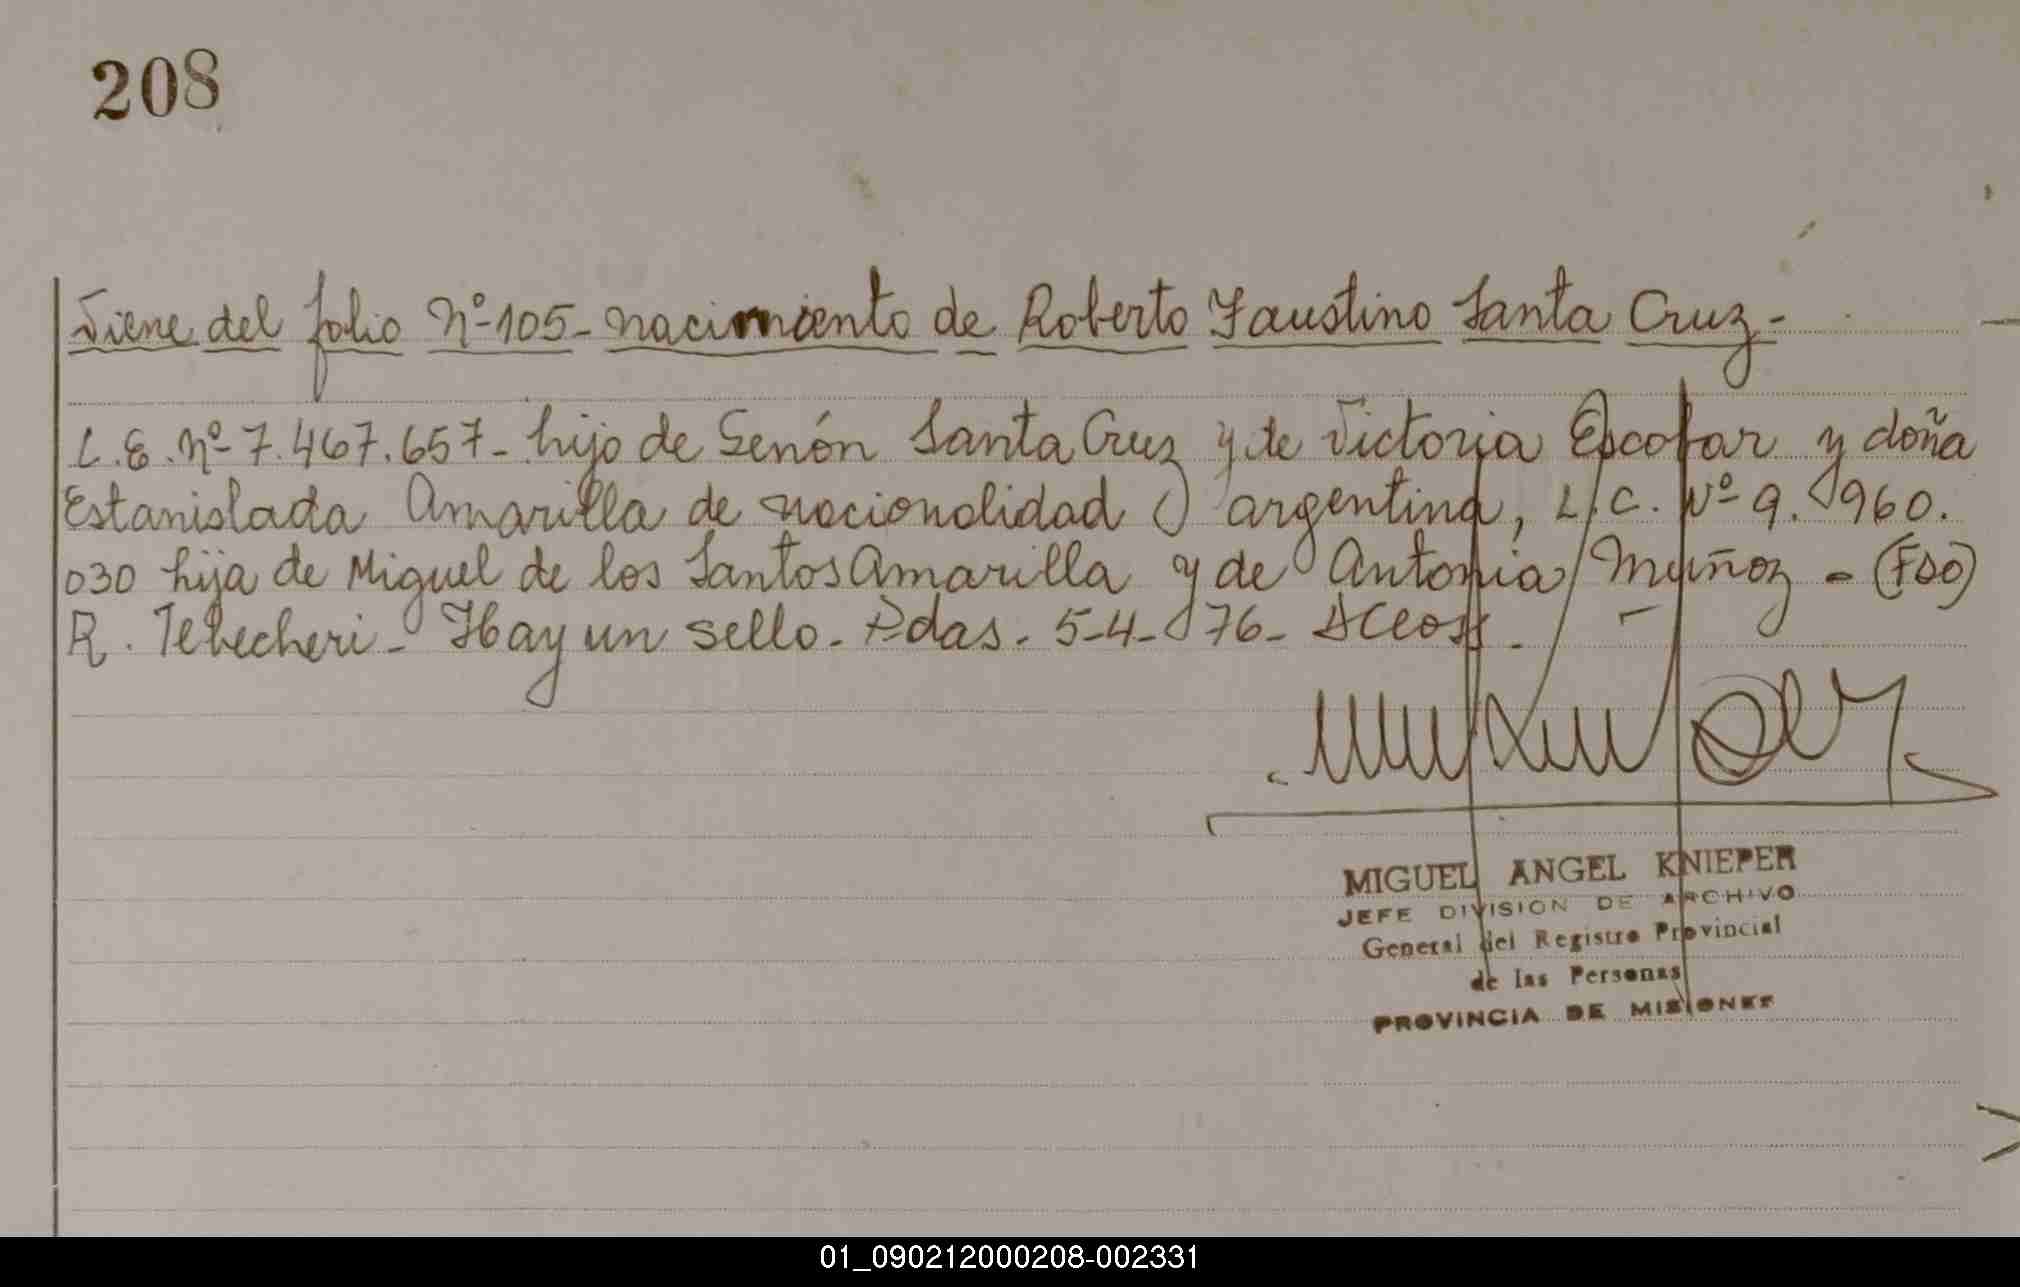 208
Viene del folio Nº-105- nacimiento de Roberto Faustino Santa Cruz-
L.E. Nº-7.467.657- hijo de Senón Santa Cruz y de Victoria Escobar y doña
Estanislada Amarilla de nacionalidad argentina, L.C. Nº 9.960.
030 hija de Miguel de los Santos Amarilla y de Antonia Muñoz - (FDO)
R. Tebecheri- Hay un sello. Pdas. 5-4-76-
MIGUEL ANGEL KNIEPER
JEFE DIVISION DE ARCHIVO
General del Registro Provincial
de las Personas
PROVINCIA DE MISIONES
01_090212000208-002331